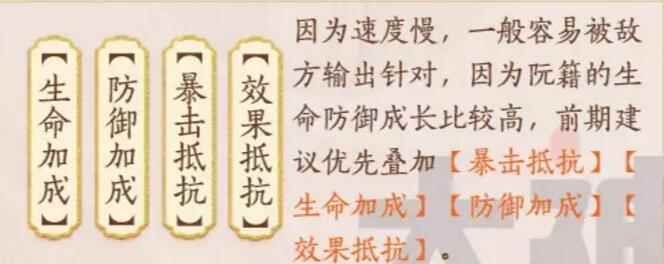 【生命加成】
【防御加成】
【暴击抵抗】
【效果抵抗】
因为速度慢，一般容易被敌
方输出针对，因为阮籍的生
命防御成长比较高，前期建
议优先叠加【暴击抵抗】【
生命加成】【防御加成】【
效果抵抗】。